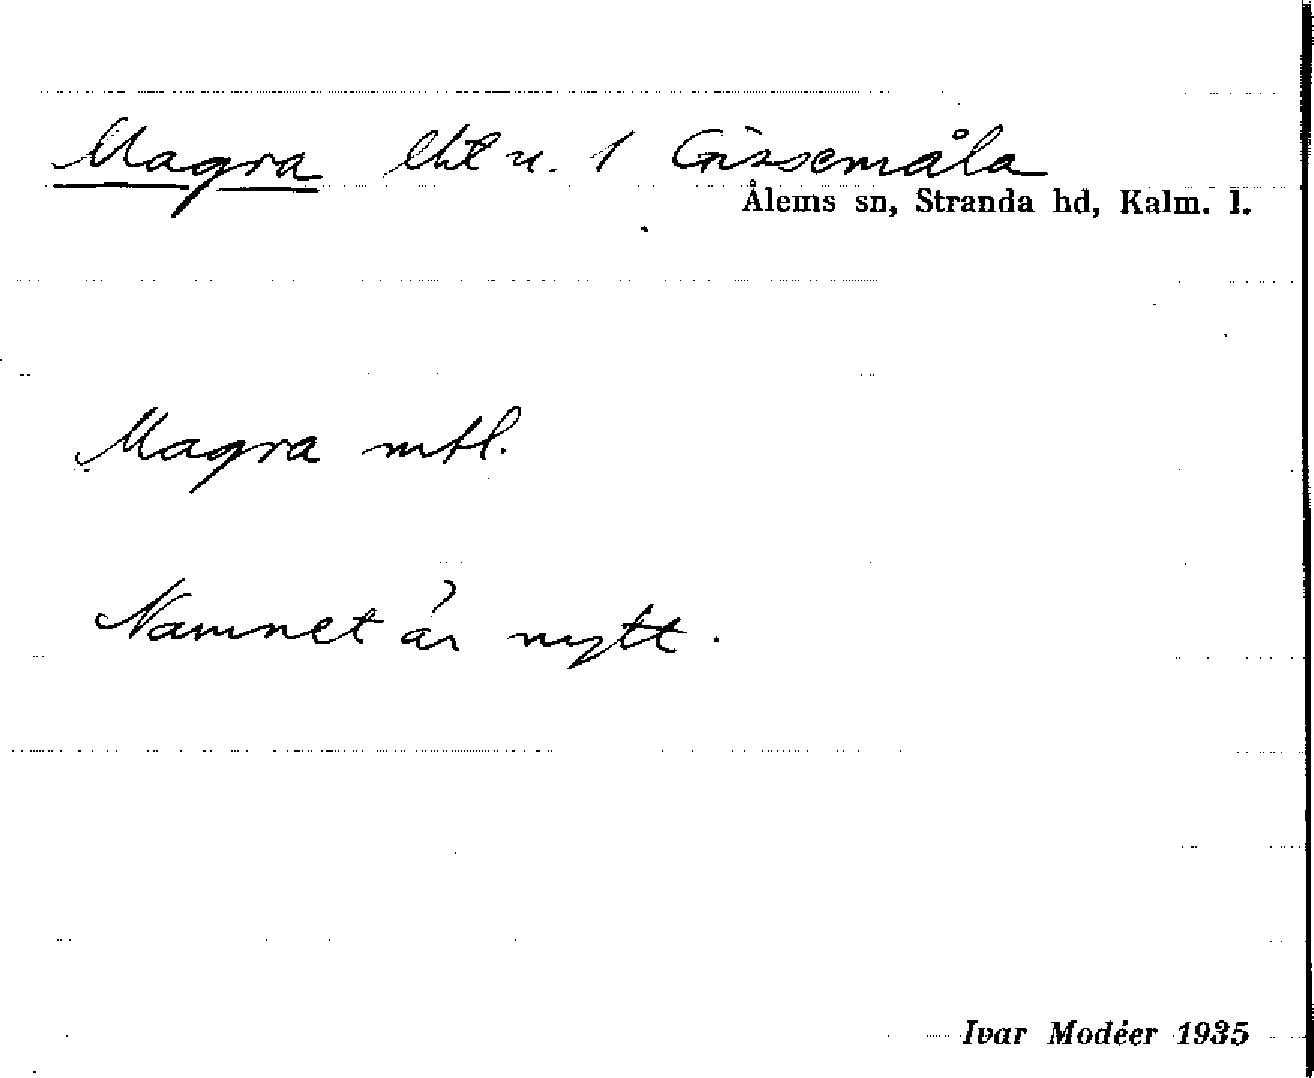 Magra lht u. 1 Gissemåla
Ålems sn, Stranda hd, Kalm. l.
Magra mtl.
Namnet är nytt.
Ivar Modéer 1935